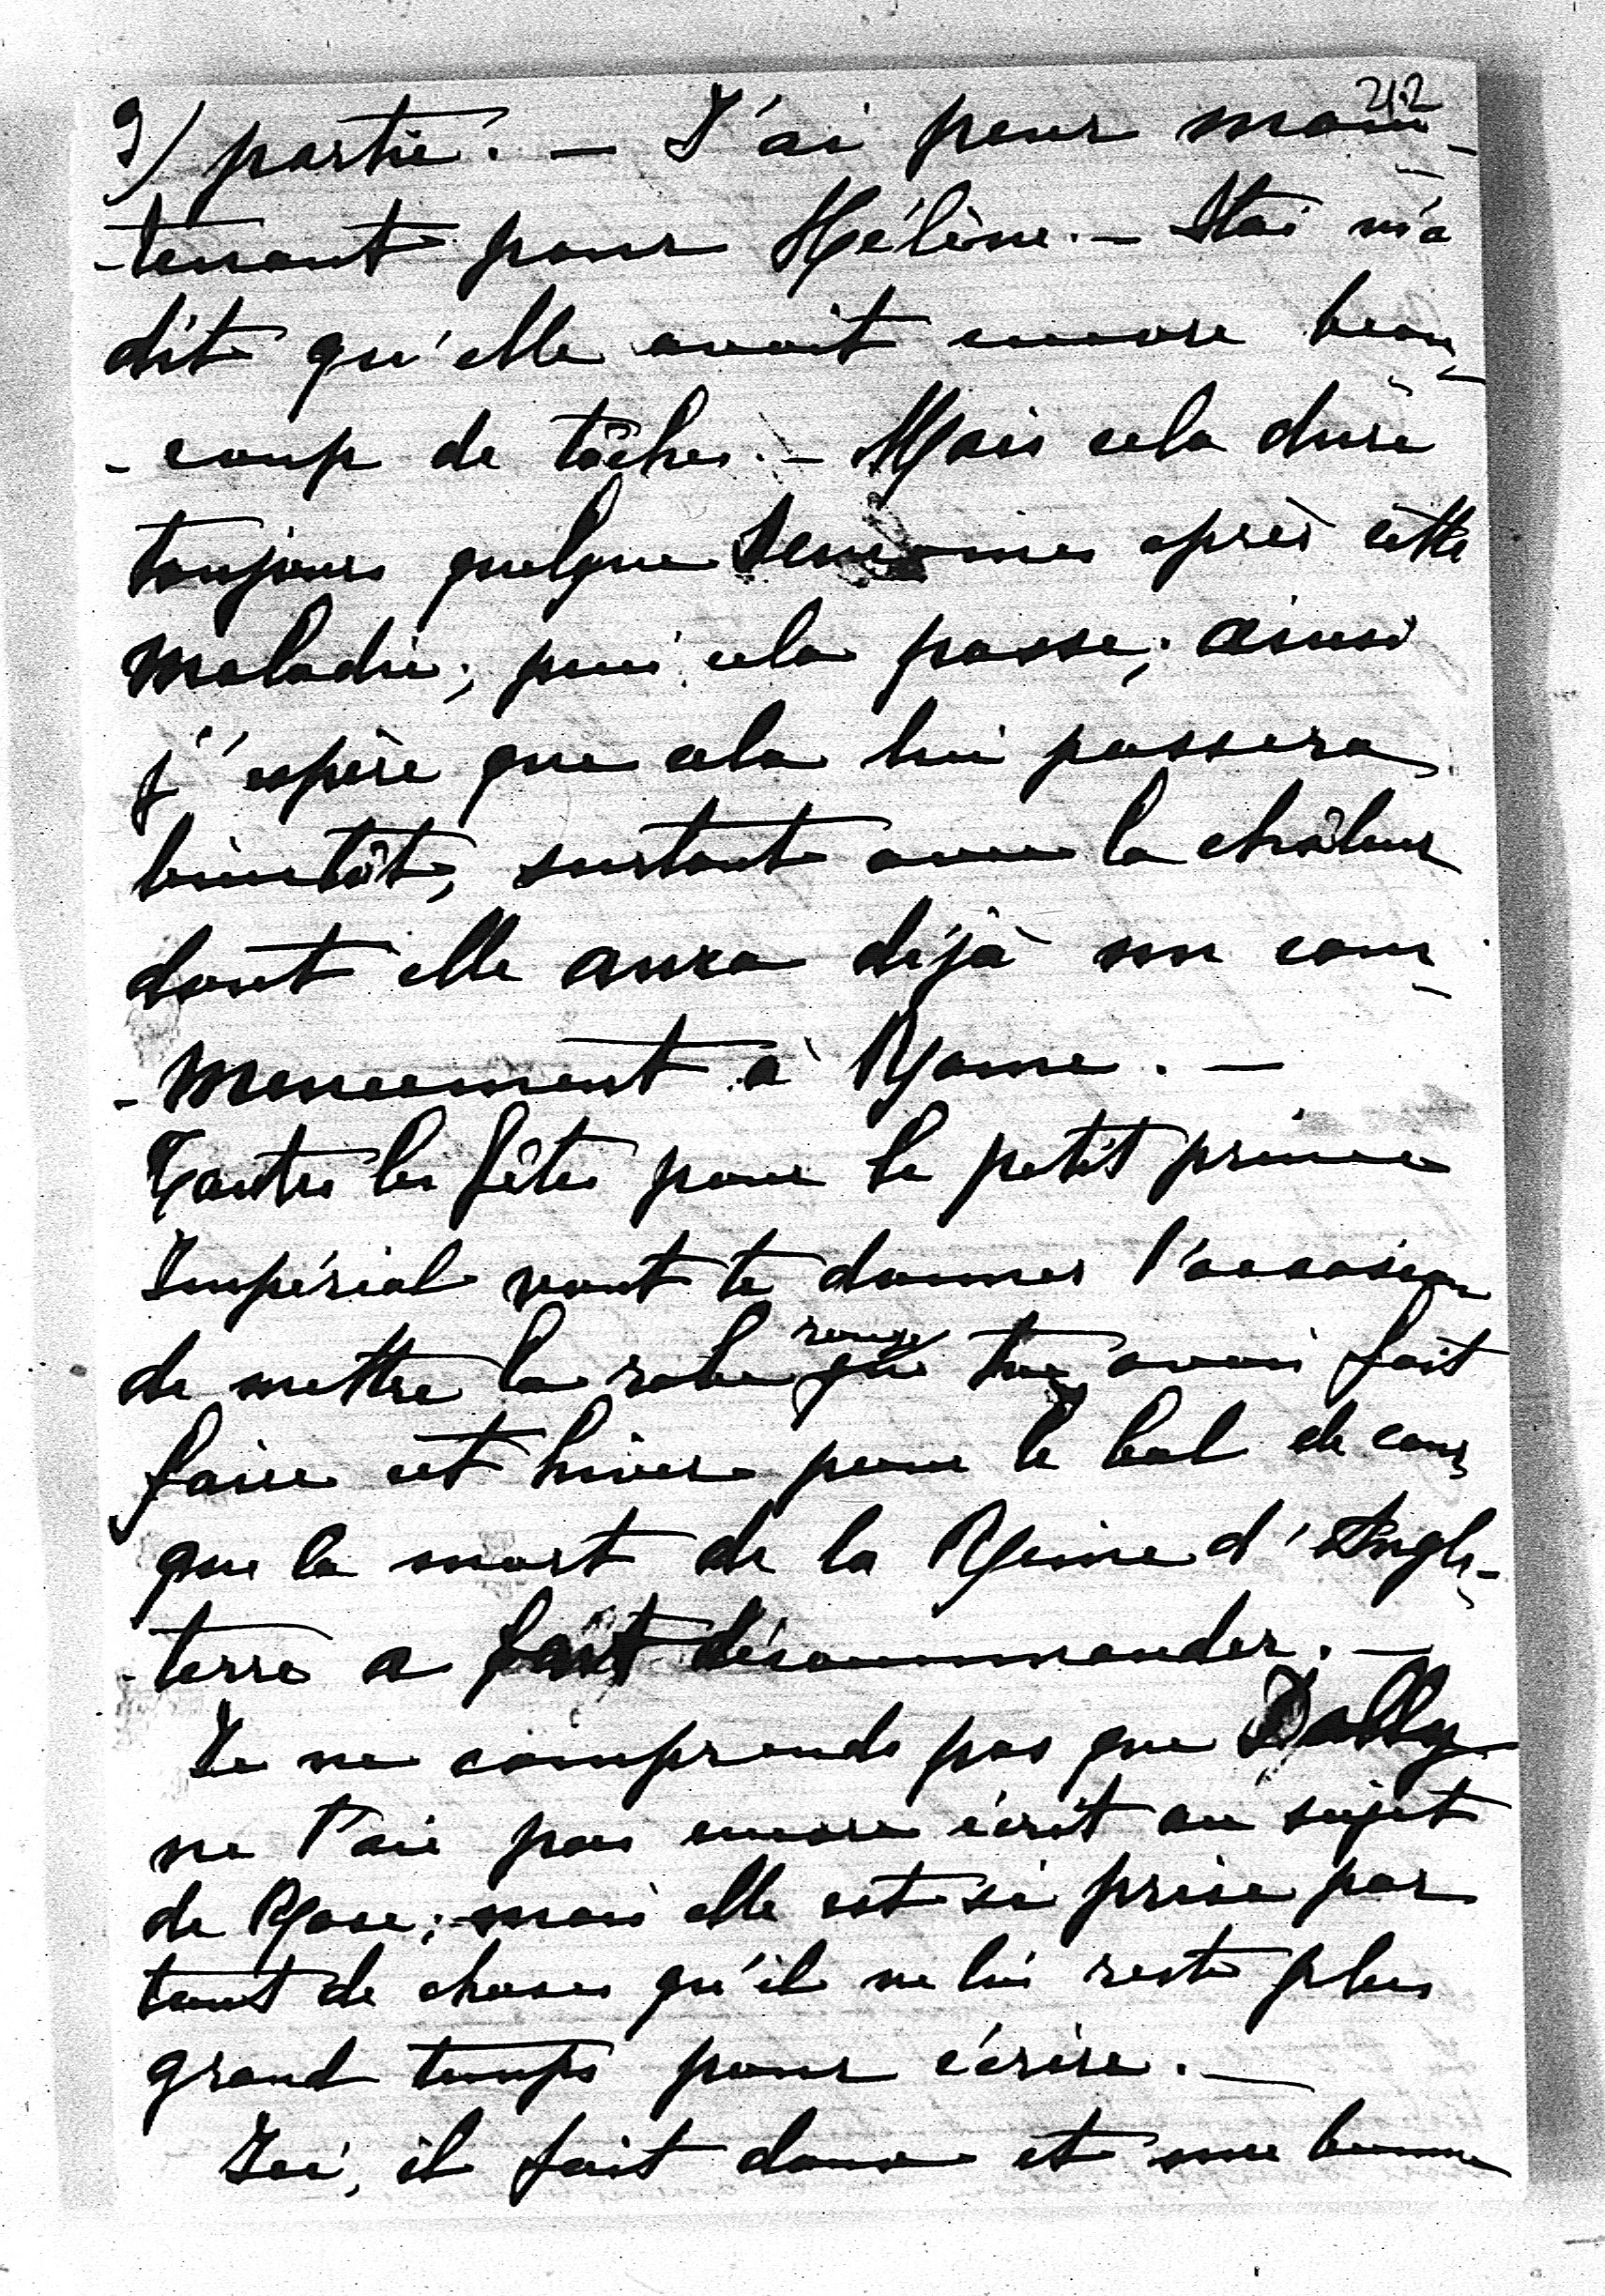 212
9/ partie. — J'ai peur main-
-tenant pour Hélène. — Itai m'a
dit qu'elle avait encore beau-
-coup de tâches. — Mais cela dure
toujours quelque semaines après cette
maladie; puis cela passe; ainsi
j'espère que cela lui passera
bientôt, surtout avec la châleur
dont elle aura déjà un com-
-mencement à Rome. —
Toutes les fêtes pour le petit prince
Impérial vont te donner l'occasion
de mettre la robe rouge que tu avais fait
faire cet hiver pour le bal de cour
que la mort de la Reine d'Angle-
-terre a fait décommander. —
Je ne comprends pas que Dolly
ne t'aie pas encore écrit au sujet
de Rose; mais elle est si prise par
tant de choses qu'il ne lui reste plus
grand temps pour écrire. —
Ici, il fait doux et une bonne